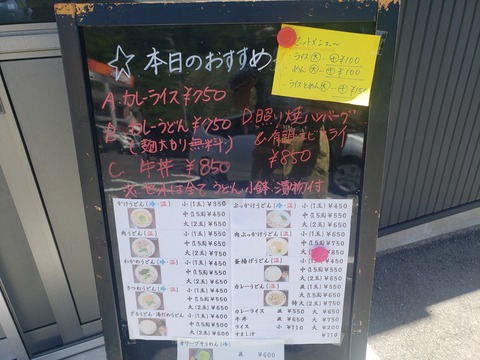 ☆本日のおすすめ
セットメニュー
ライス 大 ¥100
めん 大 ¥100
A. カレーライス ¥750
B. カレーうどん ¥750
(麺大盛り無料)
D. 照り焼ハンバーグ
&有頭エビフライ
¥850
C. 牛丼 ¥850
セットは全て うどん 小鉢 漬物付
かけうどん(冷・温) 小(1玉)¥350
中(1.5玉)¥450
大(2玉)¥550
肉うどん(温) 小(1玉)¥550
中(1.5玉)¥650
大(2玉)¥750
わかめうどん(冷・温) 小(1玉)¥450
中(1.5玉)¥550
大(2玉)¥650
きつねうどん(冷・温) 小(1玉)¥450
中(1.5玉)¥550
大(2玉)¥650
ざるうどん・湯だめうどん 小(1玉)¥400
中(1.5玉)¥500
大(2玉)¥600
ぶっかけうどん(冷・温) 小(1玉)¥450
中(1.5玉)¥550
大(2玉)¥650
肉ぶっかけうどん(冷・温) 小(1玉)¥650
中(1.5玉)¥750
大(2玉)¥850
釜揚げうどん(温) 小(1玉)¥450
中(1.5玉)¥550
大(2玉)¥650
カレーうどん(温) 小(1玉)¥550
中(1.5玉)¥650
大(2玉)¥750
カレーライス 並 ¥550 大 ¥650
牛丼 並 ¥650 大 ¥750
ライス 小 ¥110 大 ¥200
すまし汁 ¥110
オリーブそうめん(冷)
並 ¥600